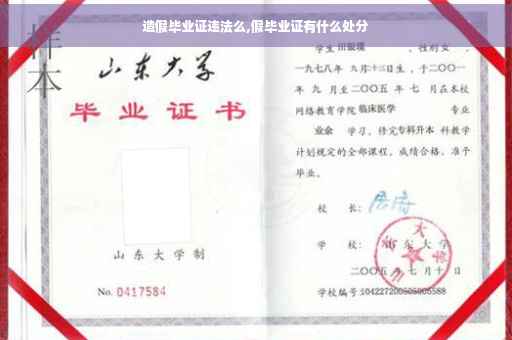 造假毕业证违法么,假毕业证有什么处分
样本
山东大学
毕业证书
山东大学制
No. 0417584
学生 田银瑛 , 性别女 ,
一九七八年 九月十三日生, 于二〇〇一
年 九 月至二〇〇五 年 七 月在本校
网络教育学院 临床医学 专业
业余 学习, 修完专科升本 科教学
计划规定的全部课程, 成绩合格, 准予
毕业。
校 长:
学 校: 山东大学
二〇〇五 年 七 月 十 日
学校编号: